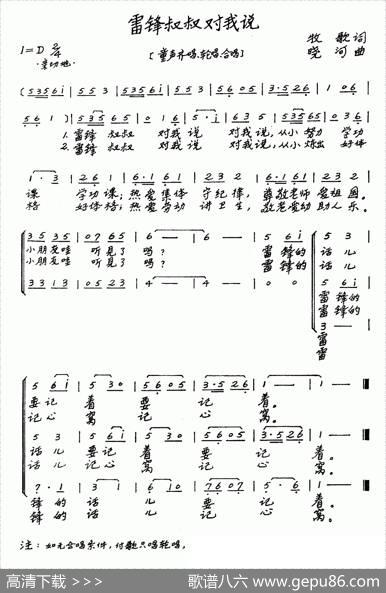 雷锋叔叔对我说
1=D 2/4
牧歌 词
晓河 曲
亲切地
[童声齐唱、轮唱、合唱]
(5356i | 553 | 5356i | 553 | 5605 | 3·526 | 106
561) | 53565 | 53 | 016 | 65 | 6323
1.雷锋 叔叔 对我 说 对我 说,从小 努力 学功
2.雷锋 叔叔 对我 说 对我 说,从小 炼出 好体
1·3 | 261 | 6·161 | 232 | 6·161 | 232
课 学功 课;热爱 集体 守纪 律,尊敬 老师 爱祖 国。
格 好体 格;热爱 劳动 讲卫 生,敬老 爱幼 助人 乐。
3535 | 0765 | 6— | 6 56i | 53
小朋友哇 听见了 吗? 雷锋的 话儿
小朋友哇 听见了 吗? 雷锋的 话儿
3313 | 0523 | 4— | 4— | 00 | 56i
雷锋的
雷锋的
3—
雷
雷
56i | 530 | 5605 | 3·526 | 1— | 1—
要记 着 要 记 着。
记心 窝 记 心 窝。
53 | 56i | 530 | 5605 | 3·526 | 1—
话儿 要记 着 要 记 着。
话儿 记心 窝 记 心 窝。
?·1 | 31 | 160 | 7607 | 5·6 | 1—
锋的 话儿 要 记 着。
锋的 话儿 记 心 窝。
注:如无合唱条件,付歌只唱轮唱。
高清下载 >>> 歌谱八六 www.gepu86.com